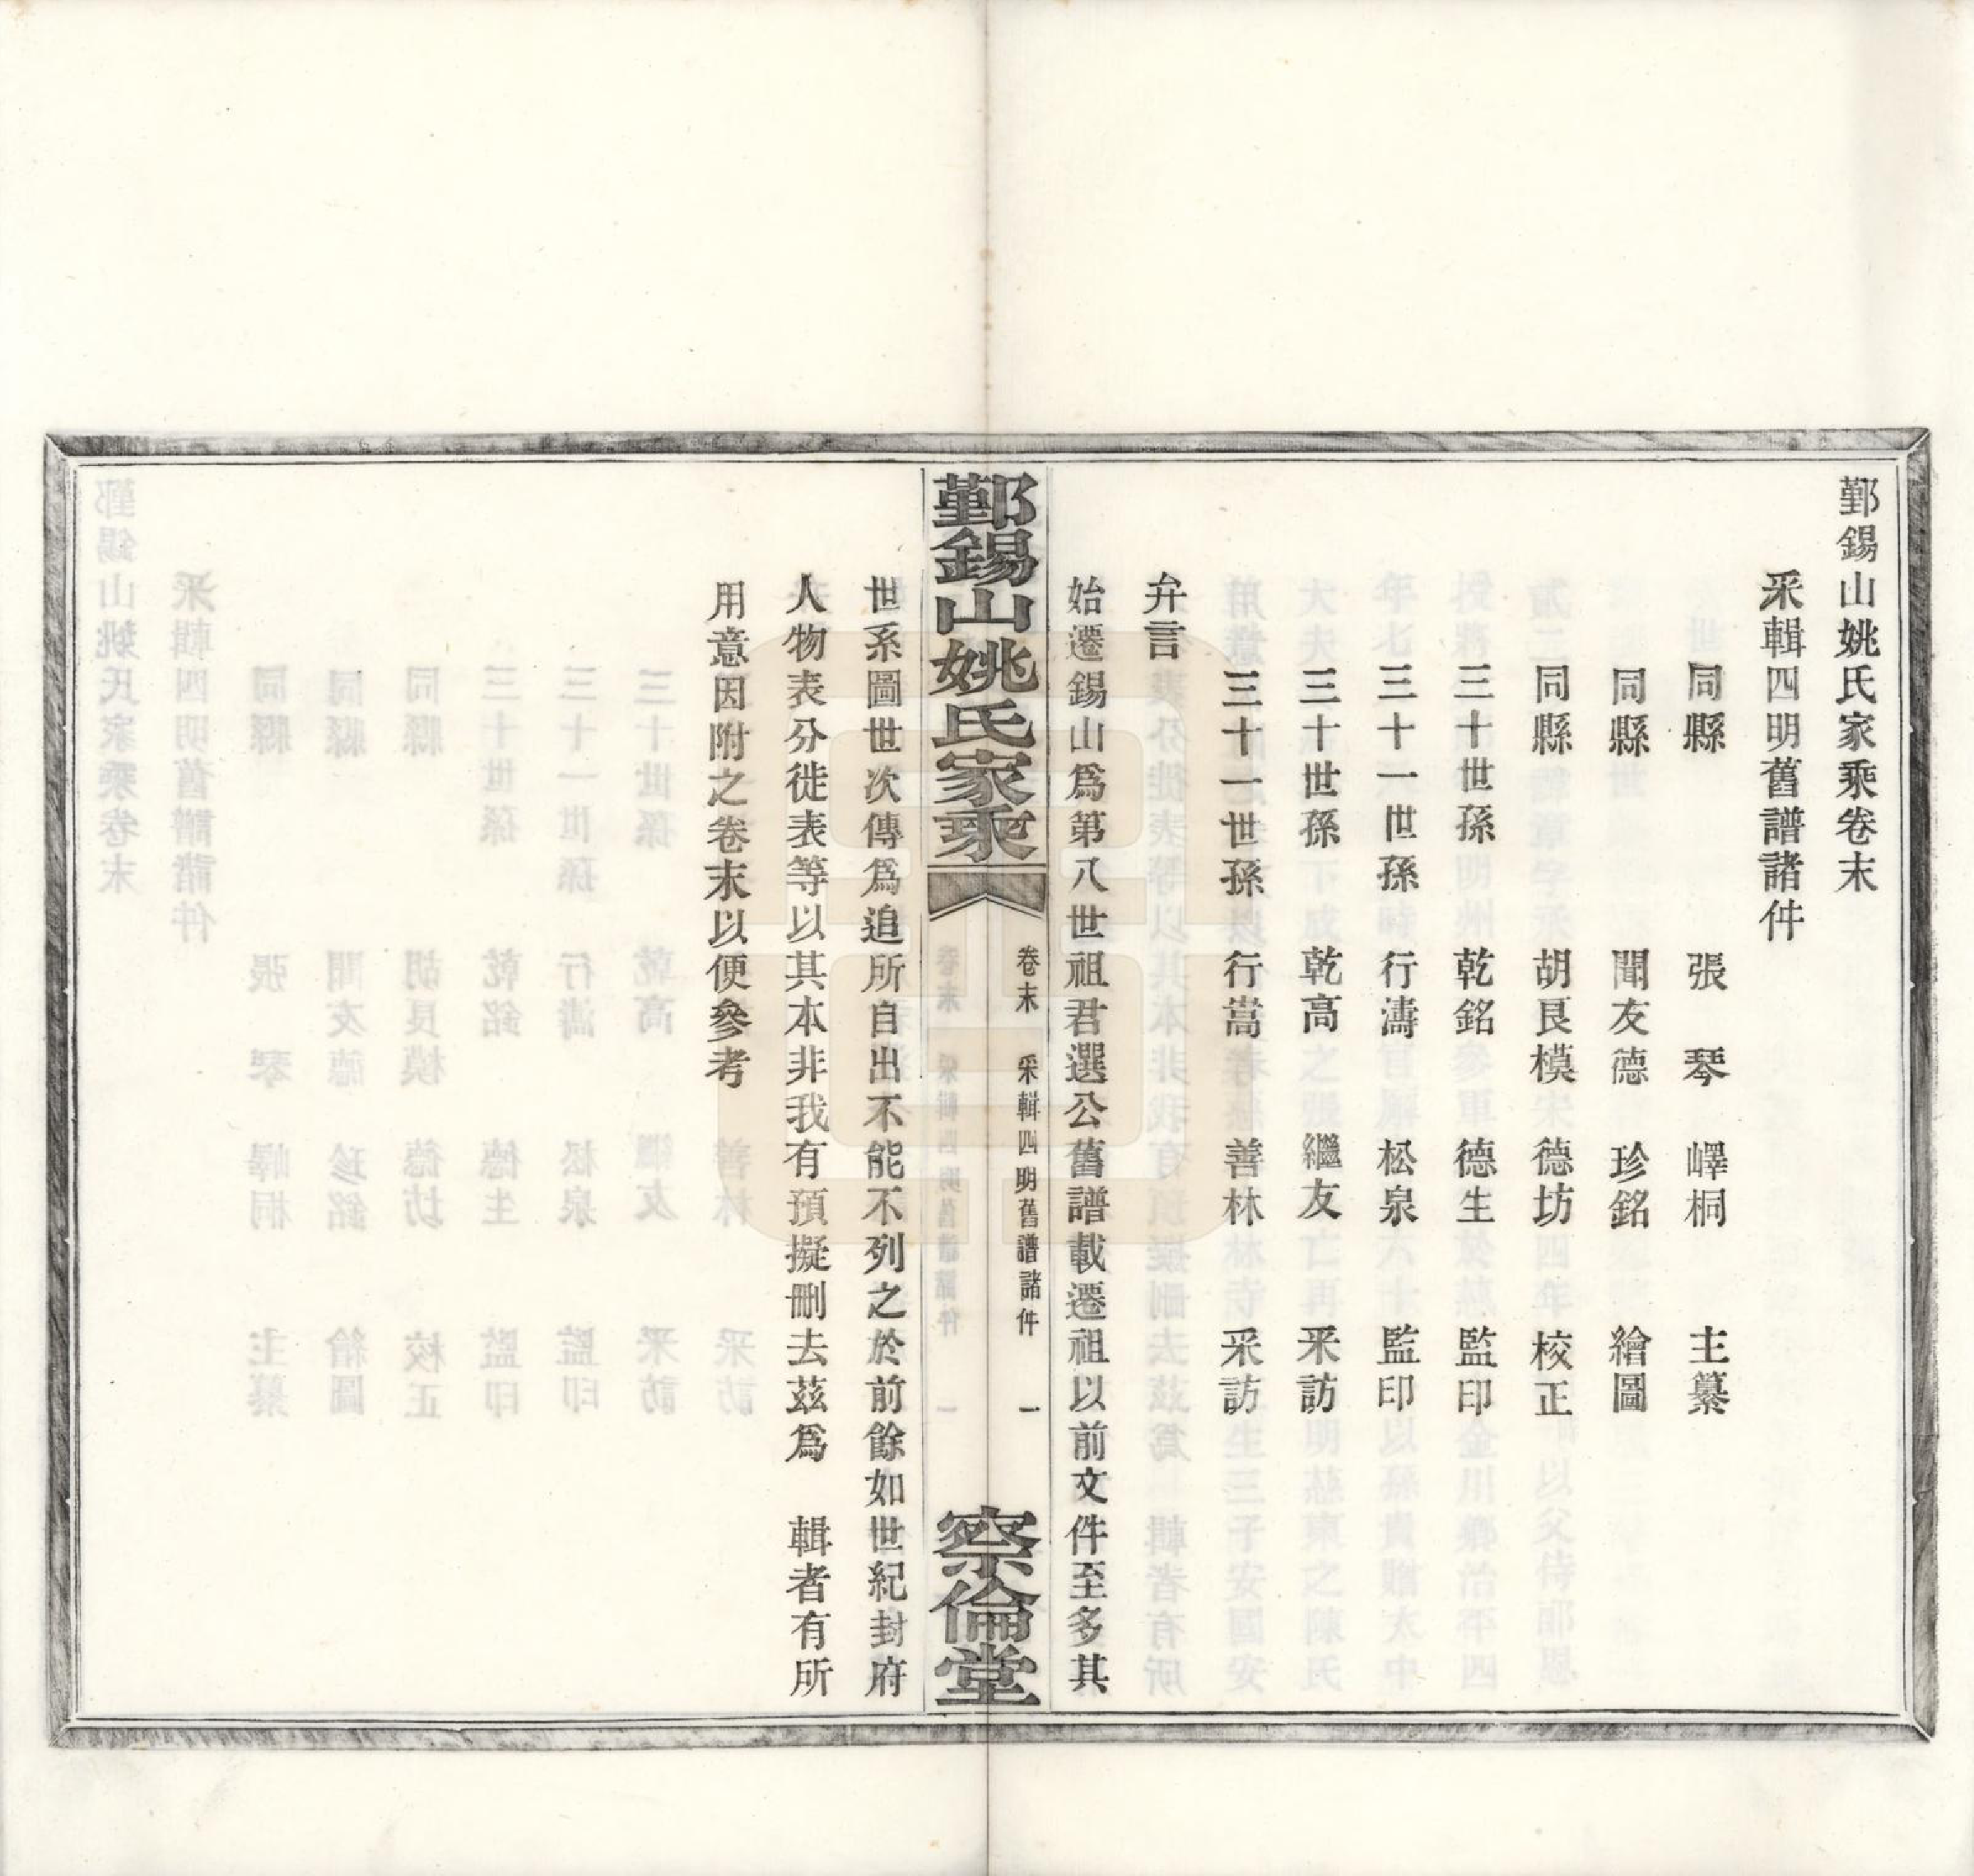 鄞錫山姚氏家乘卷末
采輯四明舊譜諸件
同縣 張琴 嶧桐 主纂
同縣 聞友德 珍銘 繪圖
同縣 胡艮模 德坊 校正
三十世孫 乾銘 德生 監印
三十一世孫 行濤 松泉 監印
三十世孫 乾高 繼友 采訪
三十一世孫 行嵩 善林 采訪
弁言
始遷錫山爲第八世祖君選公舊譜載遷祖以前文件至多其
鄞錫山姚氏家乘 卷末 采輯四明舊譜諸件 一 察倫堂
世系圖世次傳爲追所自出不能不列之於前餘如世紀封府
人物表分徙表等以其本非我有預擬刪去茲爲 輯者有所
用意因附之卷末以便參考